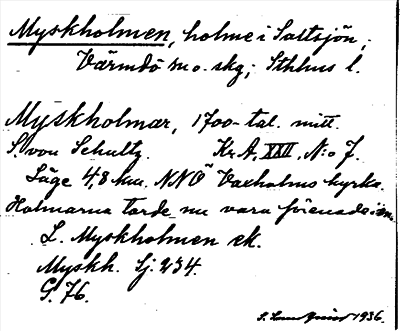 Myskholmen, holme i Saltsjön,
Värmdö sn o. skg; Sthlms l.
Myskholmar, 1700-tal. mitt.
S. von Schultz. Kr. A, XXII, N:o 7.
Läge 4,8 km. NNO Vaxholms kyrka.
Holmarna torde nu vara förenade
L. Myskholmen ek.
Myskh. Sj. 234.
G. 76.
1936.